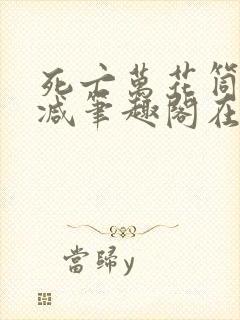 死亡萬花筒
減筆趣閣在
當歸y